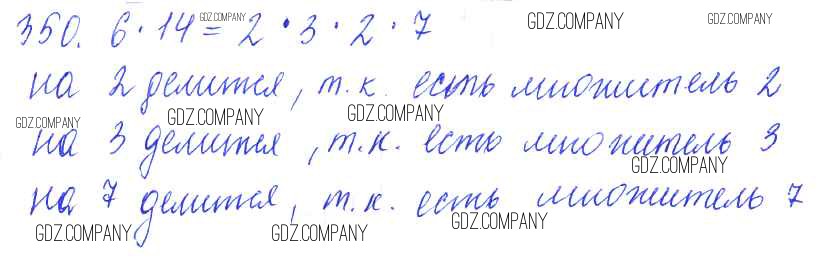 350. 6 · 14 = 2 · 3 · 2 · 7
на 2 делится, т.к. есть множитель 2
на 3 делится, т.к. есть множитель 3
на 7 делится, т.к. есть множитель 7
GDZ.COMPANY
GDZ.COMPANY
GDZ.COMPANY
GDZ.COMPANY
GDZ.COMPANY
GDZ.COMPANY
GDZ.COMPANY
GDZ.COMPANY
GDZ.COMPANY
GDZ.COMPANY